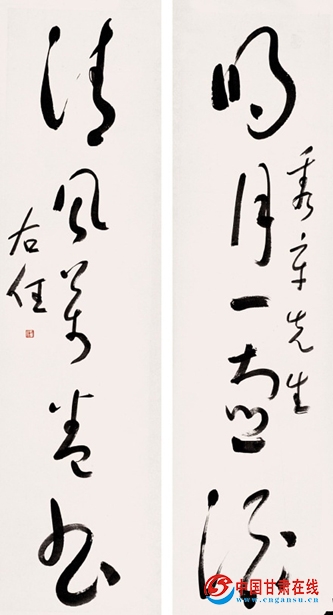 明月一壺酒
先生
清風萬卷書
右任
中国甘肃在线
www.cngansu.cn